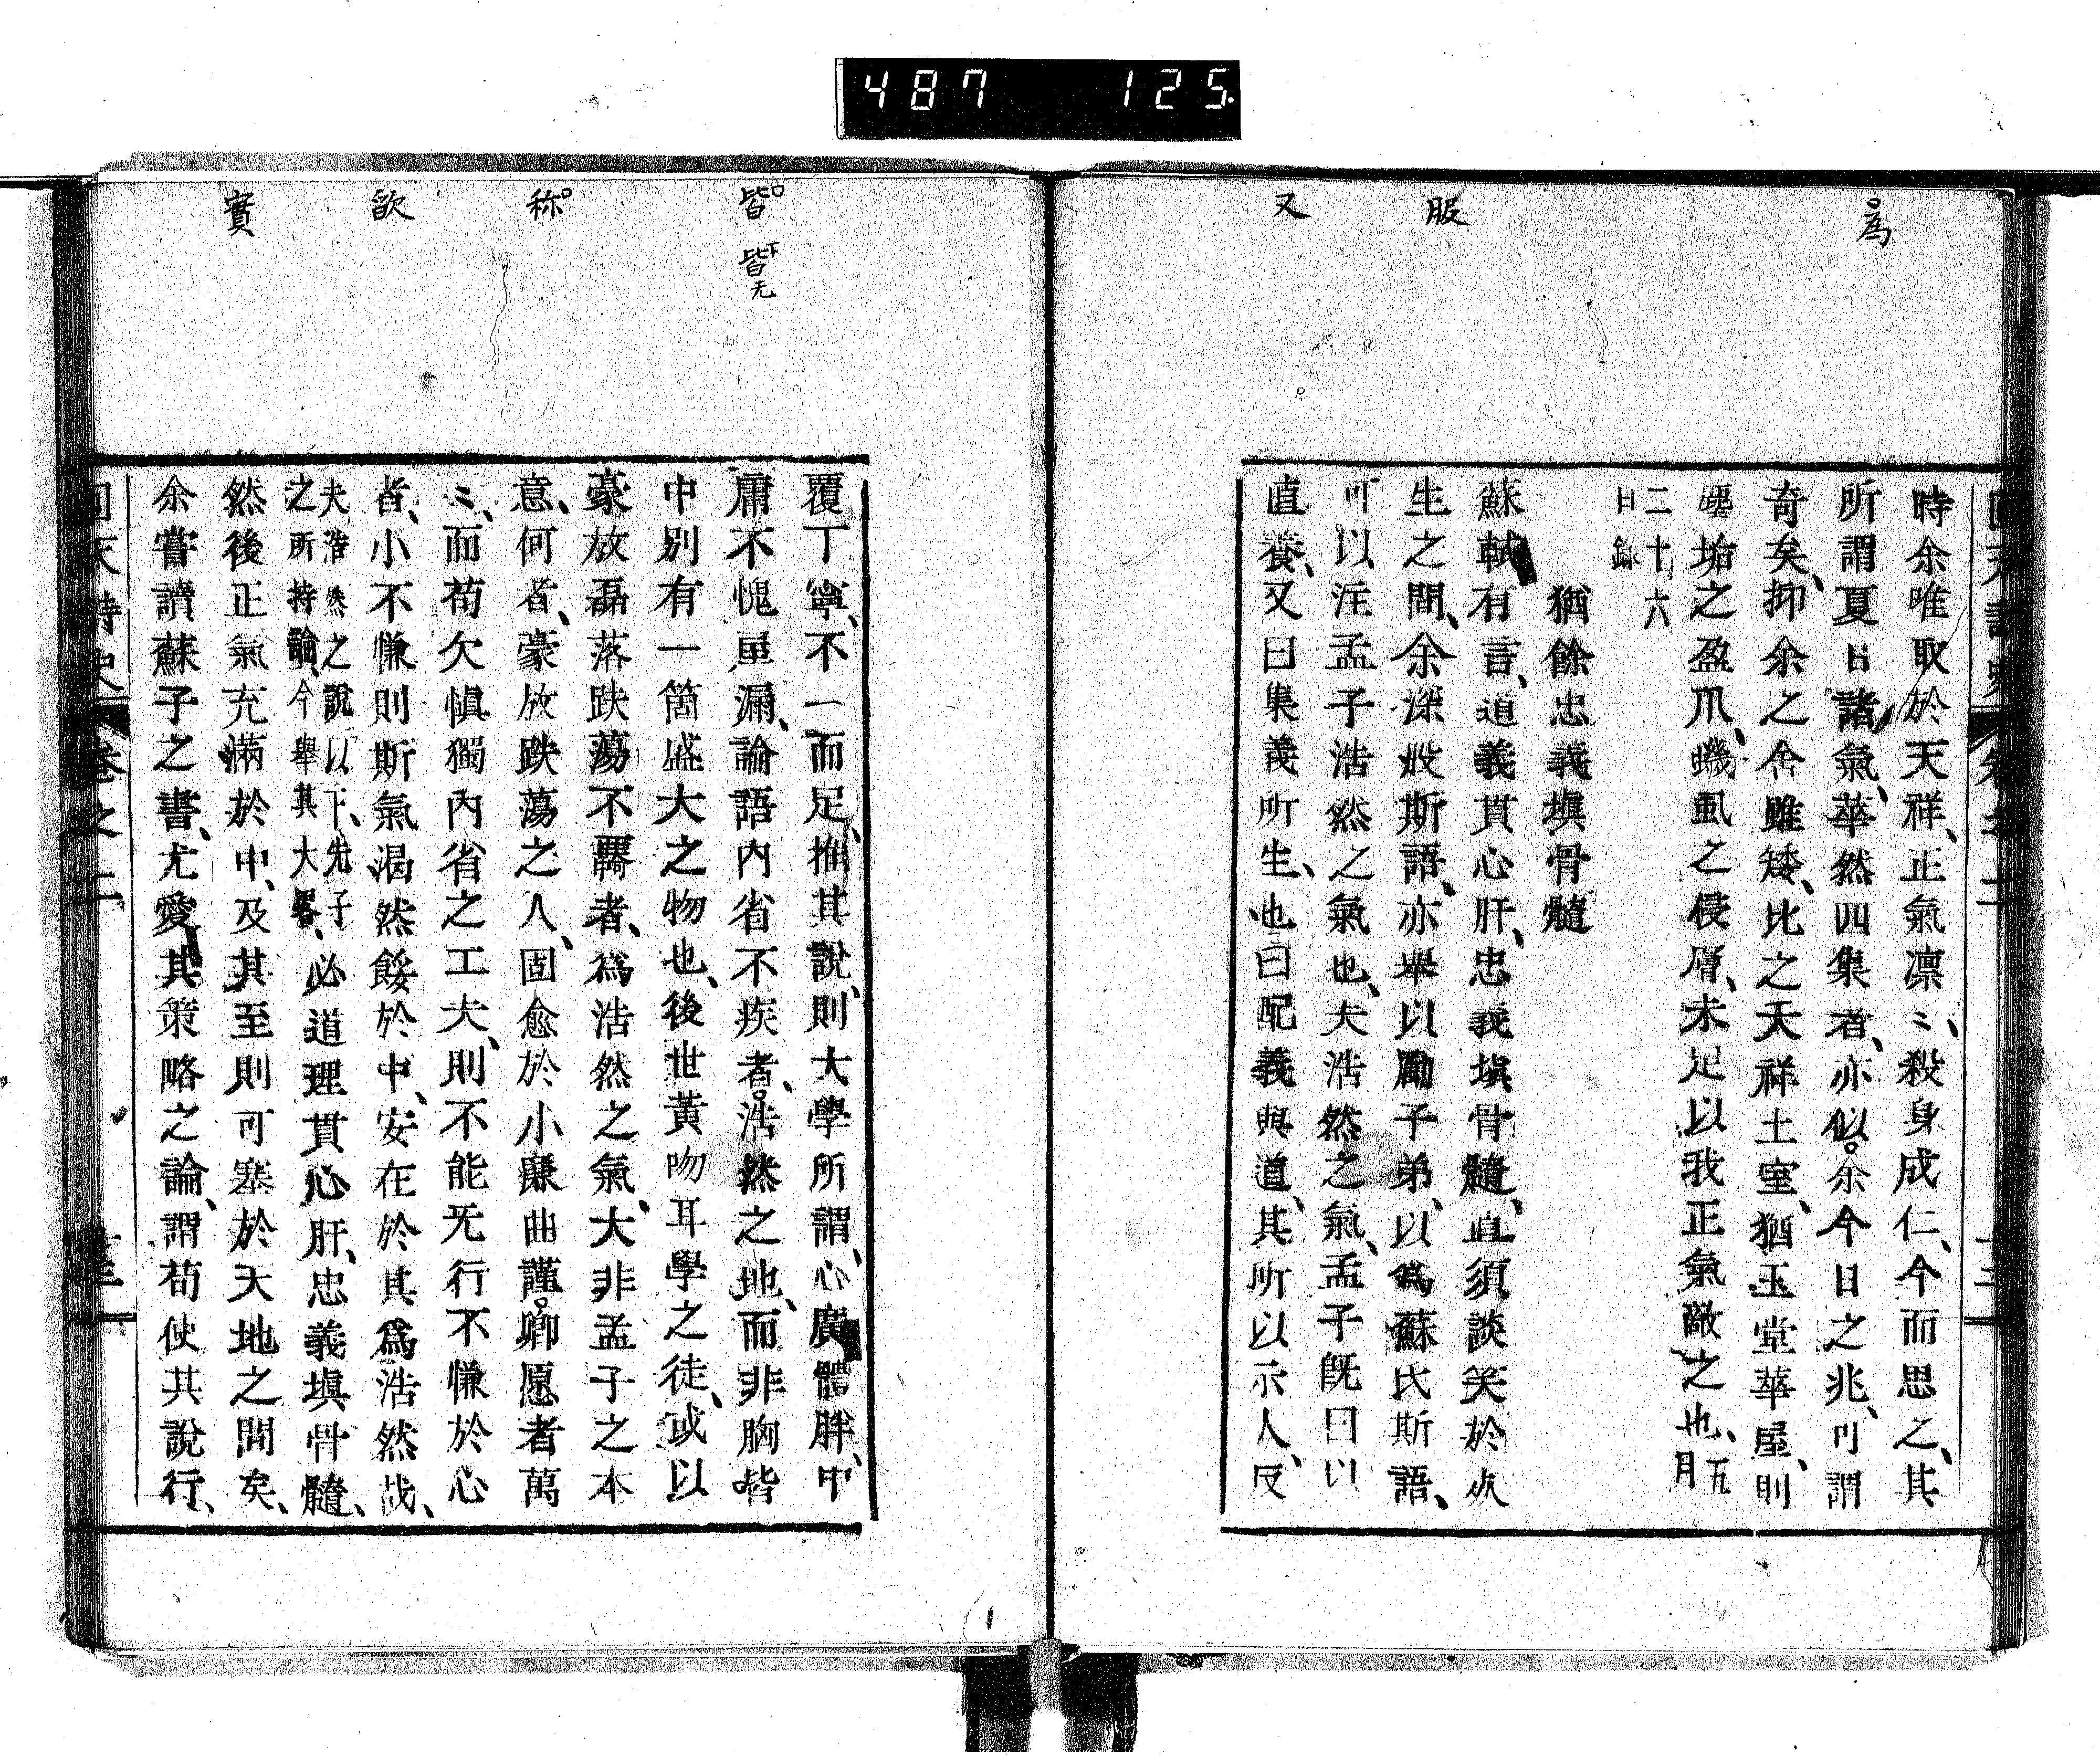 487 125
為
服
又
時余唯取於天祥、正氣凛〻、殺身成仁、今而思之、其
所謂夏日諸氣、萃然四集者、亦似。余今日之兆、可謂
奇矣、抑余之舍雖矮、比之天祥土室、猶玉堂華屋、則
塵垢之盈爪、蟣虱之侵膚、未足以我正氣敵之也、五月
二十六
日錄
猶餘忠義塡骨髓
蘇軾有言、道義貫心肝、忠義塡骨髓、直須談笑於死
生之間、余深好斯語、亦舉以勵子弟、以爲蘇氏斯語、
可以注孟子浩然之氣也、夫浩然之氣、孟子既曰以
直養、又曰集義所生也、曰配義與道、其所以示人、反
皆
下皆无
称
欿
實
覆丁寧、不一而足、推其說、則大學所謂、心廣體胖、中
庸不愧屋漏、論語內省不疾者。浩然之地、而非胸皆
中別有一箇盛大之物也、後世黃吻耳學之徒、或以
豪放磊落跌蕩不羈者、爲浩然之氣、大非孟子之本
意、何者、豪放跌蕩之人、固愈於小廉曲謹。鄕愿者萬
〻、而苟欠愼獨內省之工夫、則不能无行不慊於心
者、小不慊則斯氣渴然餒於中、安在於其爲浩然哉、
夫浩然之說以下、先子
之所持論、今舉其大畧、必道理貫心肝、忠義塡骨髓、
然後正氣充滿於中、及其至則可塞於天地之間矣、
余嘗讀蘇子之書、尤愛其策略之論、謂苟使其說行、
回天詩史 卷之二